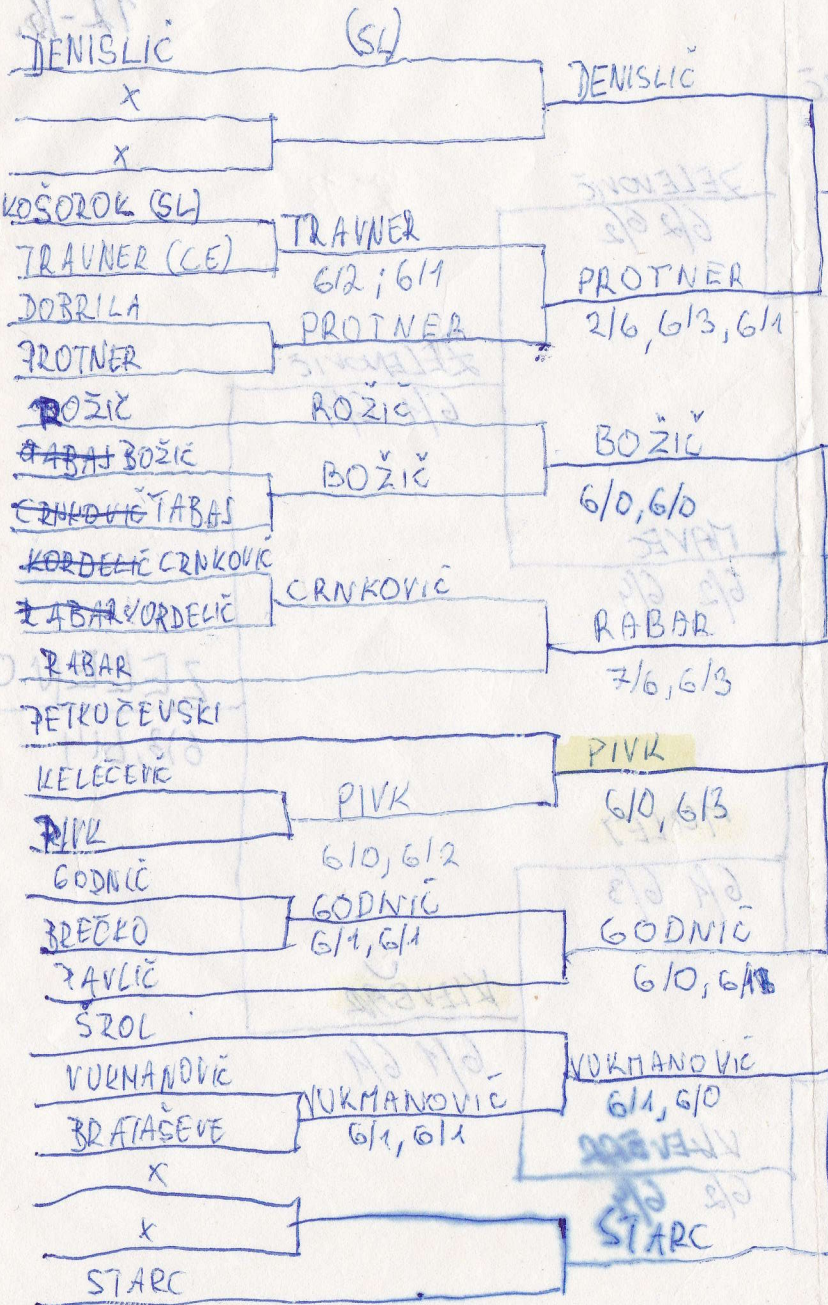 DENISLIČ (SL)
X
X
KOŠOROK (SL)
TRAVNER (CE)
DOBRILA
PROTNER
ROŽIČ
TABAJ BOŽIČ
CRNKOVIČ TABAS
KORDELIČ CRNKOVIČ
RABAR KORDELIČ
RABAR
PETKOČEVSKI
KELEČEVIČ
PIVK
GODNIČ
BREČKO
PAVLIČ
ŠROL
VUKMANOVIČ
BRATAŠEVE
X
X
STARC
TRAVNER
6/2 ; 6/1
PROTNER
ROŽIČ
BOŽIČ
CRNKOVIČ
PIVK
6/0, 6/2
GODNIČ
6/1, 6/1
VUKMANOVIČ
6/1, 6/1
DENISLIČ
PROTNER
2/6, 6/3, 6/1
BOŽIČ
6/0, 6/0
RABAR
7/6, 6/3
PIVK
6/0, 6/3
GODNIČ
6/0, 6/1
VUKMANOVIČ
6/1, 6/0
STARC